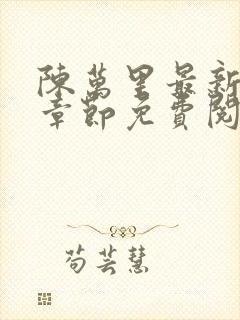 陳萬里最新
章節免費閱
苟芸慧